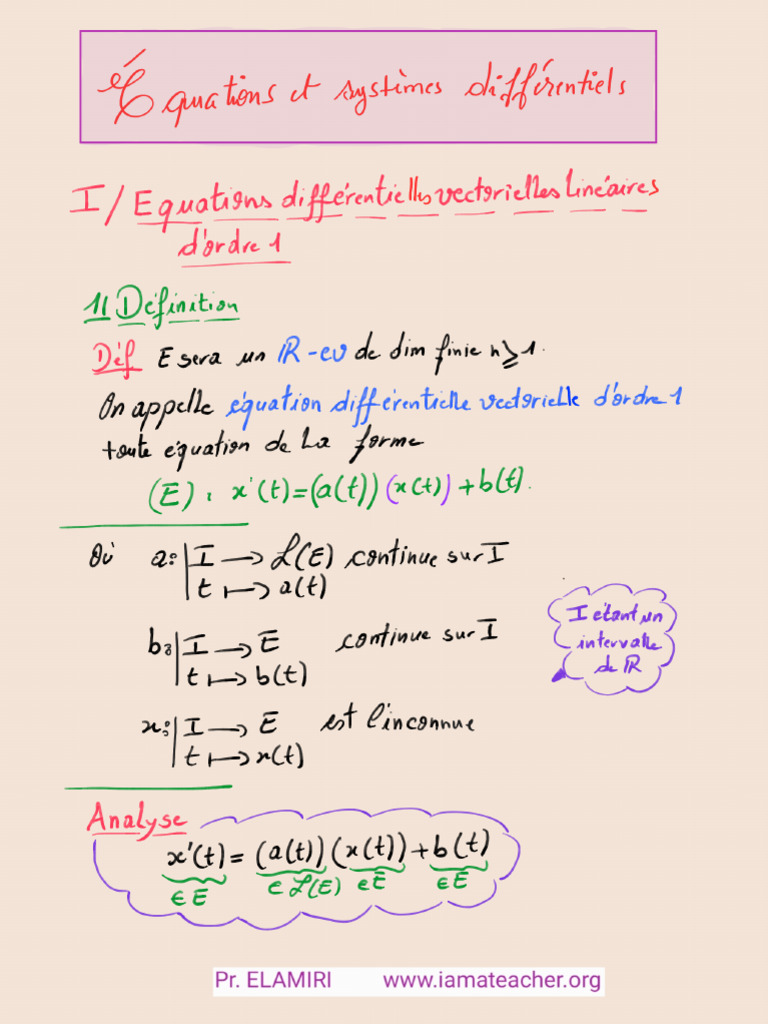 Équations et systèmes différentiels
I/ Equations différentielles vectorielles linéaires
d'ordre 1
1/ Définition
Déf E sera un ℝ-ev de dim finie n ≥ 1.
On appelle équation différentielle vectorielle d'ordre 1
toute équation de la forme
(E) : x'(t) = (a(t)) (x(t)) + b(t).
Où a: | I → ℒ(E) continue sur I
t ↦ a(t)
b: | I → E continue sur I
t ↦ b(t)
I étant un
intervalle
de ℝ
x: | I → E est l'inconnue
t ↦ x(t)
Analyse
x'(t) = (a(t)) (x(t)) + b(t)
∈ E ∈ ℒ(E) ∈ E ∈ E
Pr. ELAMIRI www.iamateacher.org